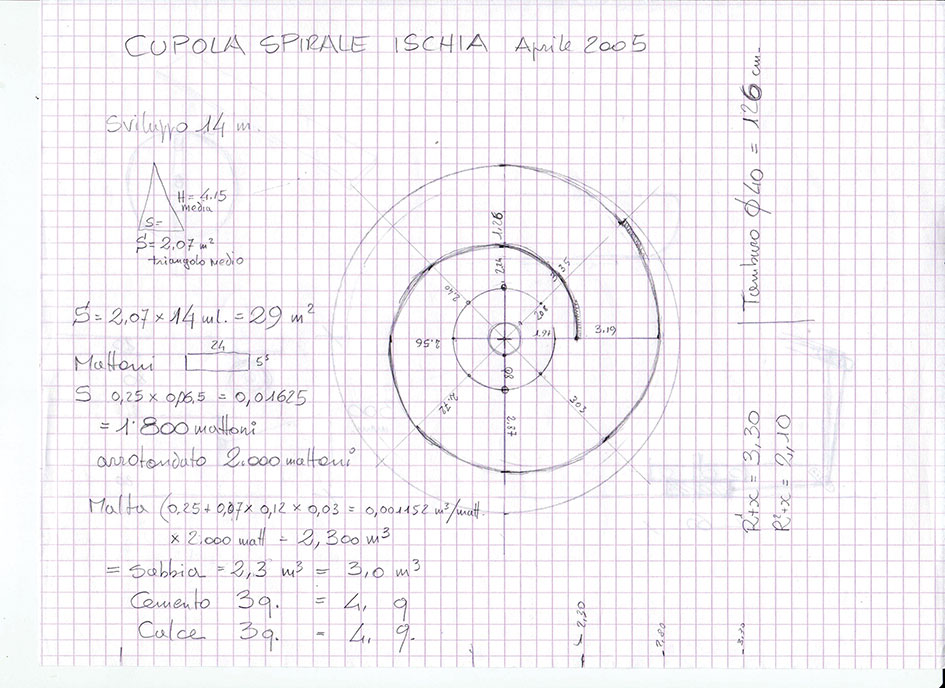 CUPOLA SPIRALE ISCHIA Aprile 2005
Sviluppo 14 m.
H = 4.15
media
S =
S = 2,07 m²
triangolo medio
S = 2,07 × 14 ml. = 29 m²
Mattoni
24
5⁵
S 0,25 × 0,06.5 = 0,01625
= 1.800 mattoni
arrotondato 2.000 mattoni
Malta (0,25 + 0,07 × 0,12 × 0,03 = 0,001152 m³/matt.
× 2.000 matt = 2,300 m³
= Sabbia = 2,3 m³ = 3,0 m³
Cemento 3 q. = 4, q
Calce 3 q. = 4, q.
1.26
224
2.40
208
2.56
1.61
3.19
80
2.72
303
2.87
Tamburo ϕ 40 = 126 cm.
R¹+x = 3,30
R²+x = 2,10
2,30
2.80
3.30